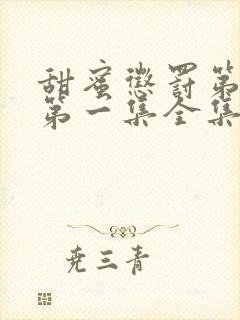 甜蜜惩罚第
第一集全集
尧三青